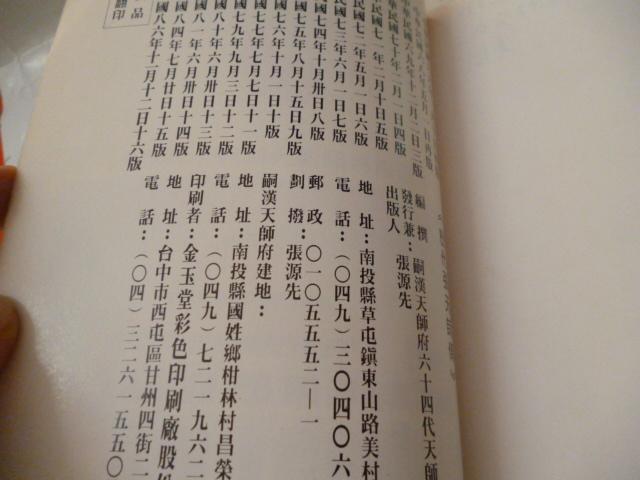 民國六九年十二月二日三版
華民國七十年二月一日四版
民國七一年二月十日五版
民國七二年五月一日六版
民國七三年六月一日七版
國七四年十月卅日八版
國七五年八月十五日九版
國七六年十月一日十版
國七七年七月七日十一版
國七九年九月三日十二版
國八十年六月卅日十三版
國八一年六月卅日十四版
國八四年七月廿日十五版
國八六年十一月十二日十六版
品
翻印
編撰：嗣漢天師府六十四代天師
發行兼：張源先
出版人
地址：南投縣草屯鎮東山路美村
電話：（〇四九）三〇四〇六
郵政：〇一〇五五五二—一
劃撥：張源先
嗣漢天師府建地：
地址：南投縣國姓鄉柑林村昌榮
電話：（〇四九）七二一九六二
印刷者：金玉堂彩色印刷廠股
地址：台中市西屯區甘州四街二
電話：（〇四）三二六一五五〇